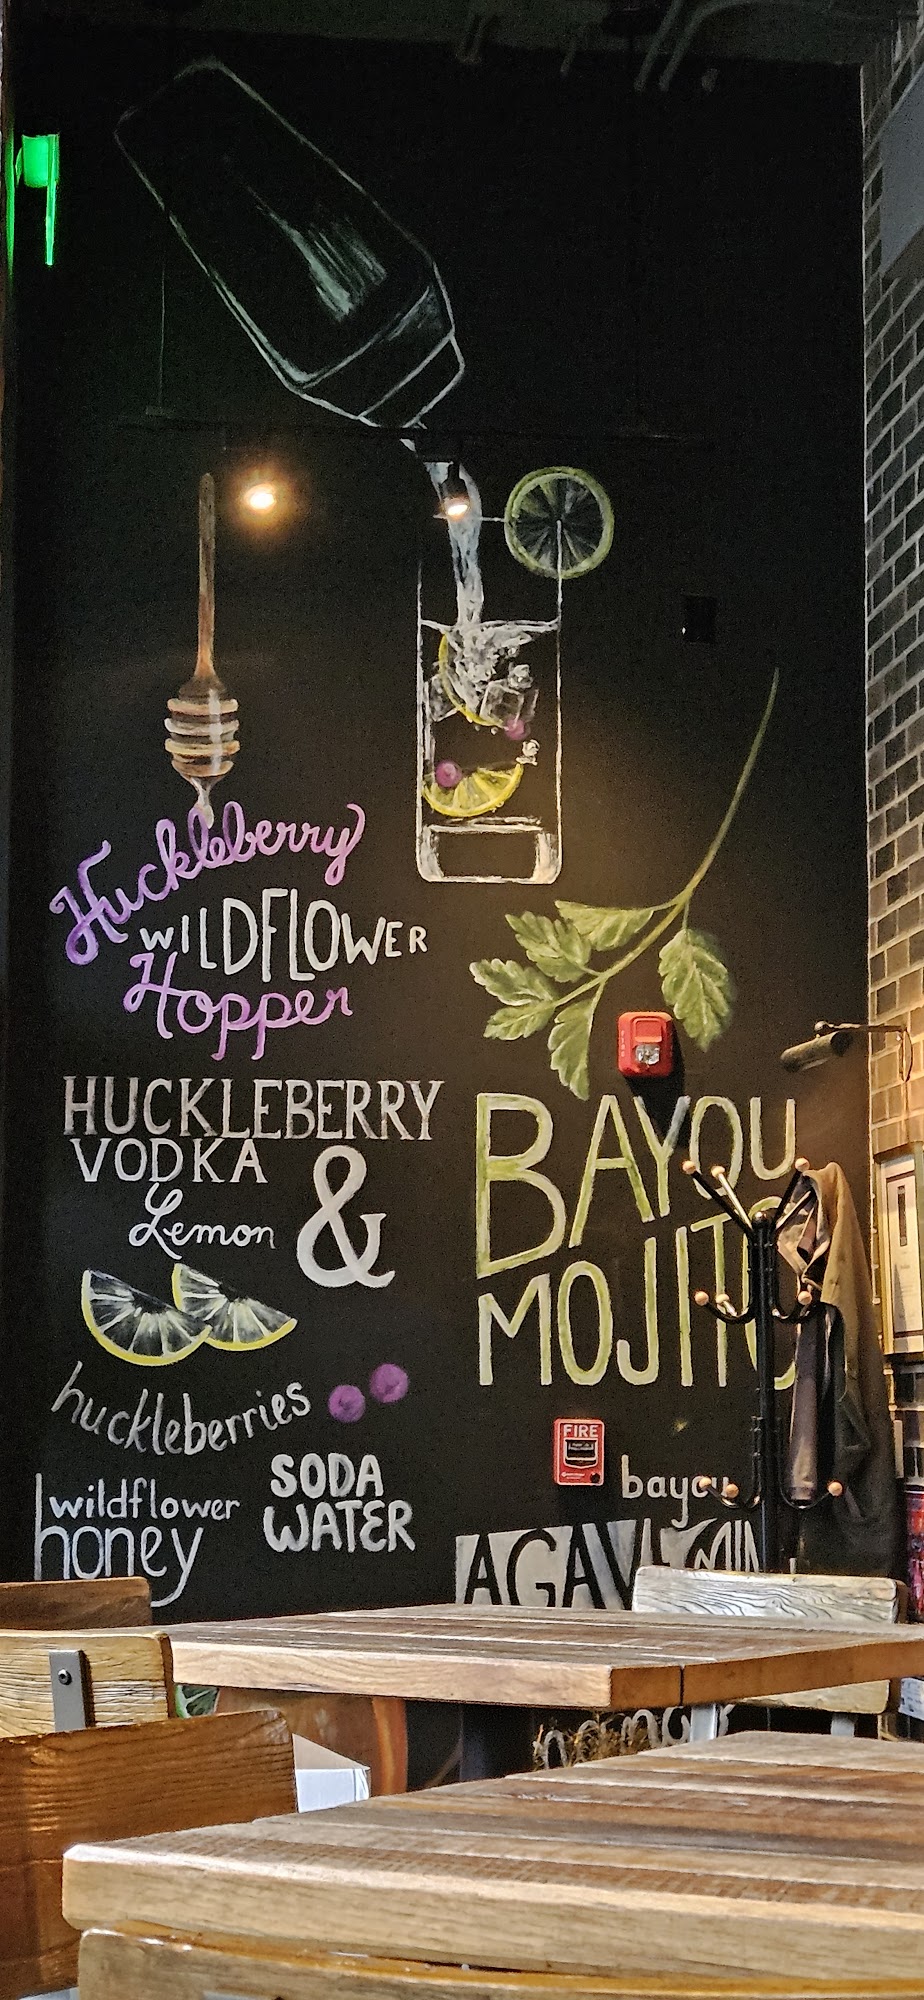 Huckleberry
WILDFLOWER
Hopper
HUCKLEBERRY
VODKA
Lemon &
huckleberries
wildflower
honey
SODA
WATER
BAYOU
MOJITO
FIRE
bayou